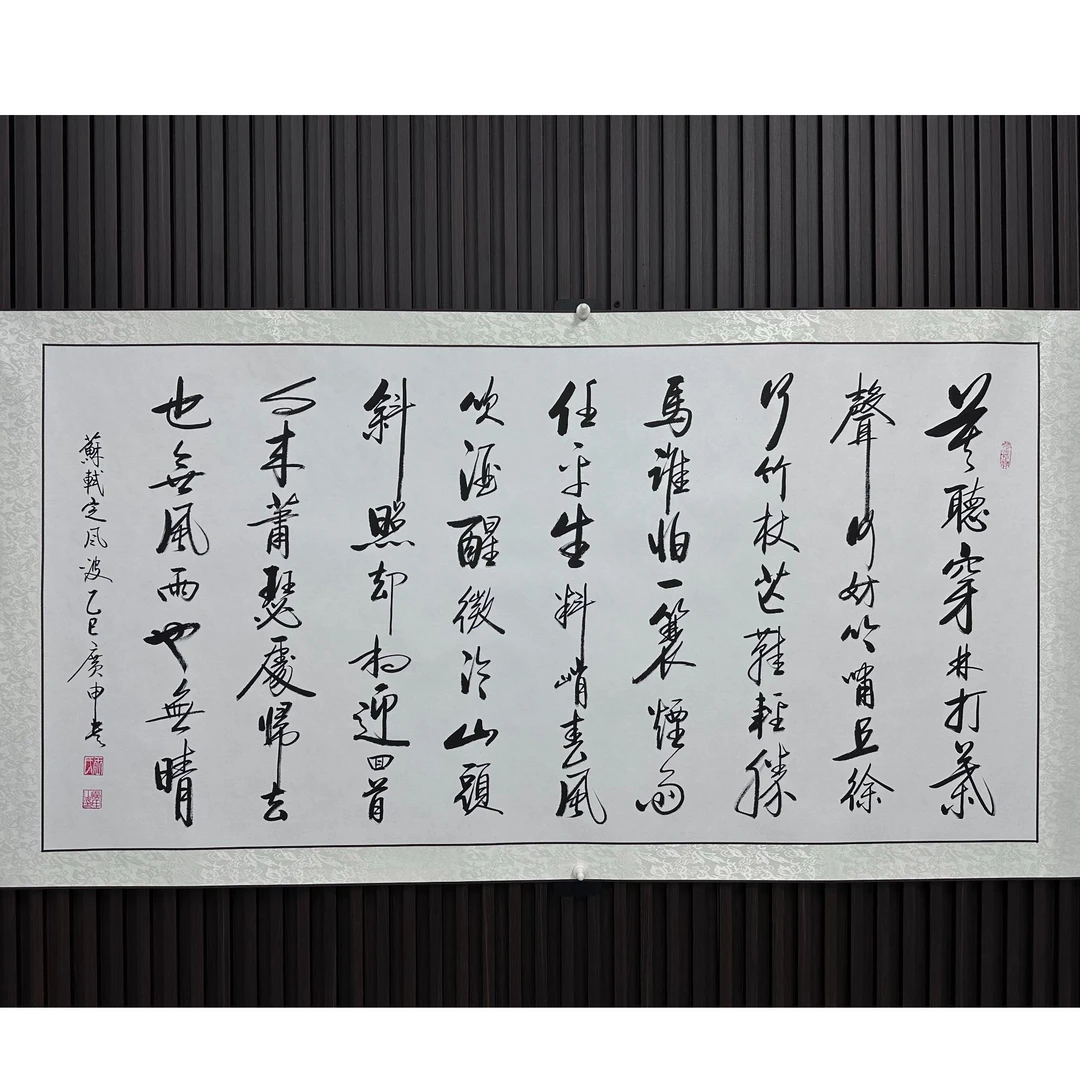 莫聽穿林打葉
聲何妨吟嘯且徐
行竹杖芒鞋輕勝
馬誰怕一蓑煙雨
任平生料峭春風
吹酒醒微冷山頭
斜照却相迎回首
向来蕭瑟處歸去
也無風雨也無晴
蘇軾定風波乙巳廣申書